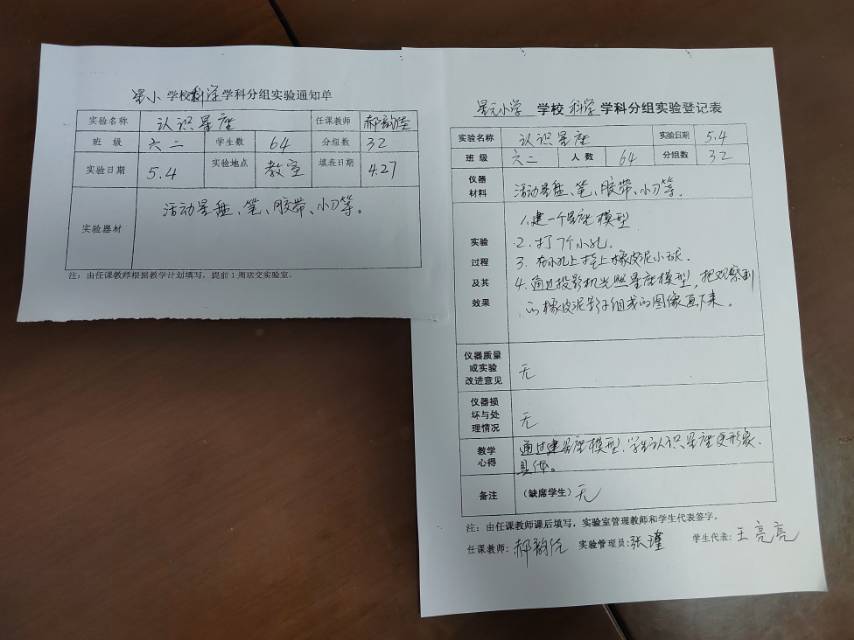 星小 学校科学学科分组实验通知单
实验名称 认识星座 任课教师 郝韵
班 级 六二 学生数 64 分组数 32
实验日期 5.4 实验地点 教室 填表日期 4.27
实验器材 活动星盘、笔、胶带、小刀等。
注：由任课教师根据教学计划填写，提前1周送交实验室。
星元小学 学校 科学 学科分组实验登记表
实验名称 认识星座 实验日期 5.4
班 级 六二 人 数 64 分组数 32
仪器
材料
活动星盘、笔、胶带、小刀等.
实验
过程
及其
效果
1.建一个星座模型
2.打7个小孔.
3.在小孔上挂上橡皮泥小球.
4.通过投影机光照星座模型，把观察到
的橡皮泥影子组成的图像画下来。
仪器质量
或实验
改进意见
无
仪器损
坏与处
理情况
无
教学
心得
通过建星座模型，学生认识星座更形象.
具体。
备注 （缺席学生）无
注：由任课教师课后填写，实验室管理教师和学生代表签字。
任课教师: 郝韵 实验管理员: 张瑾 学生代表: 王亮亮